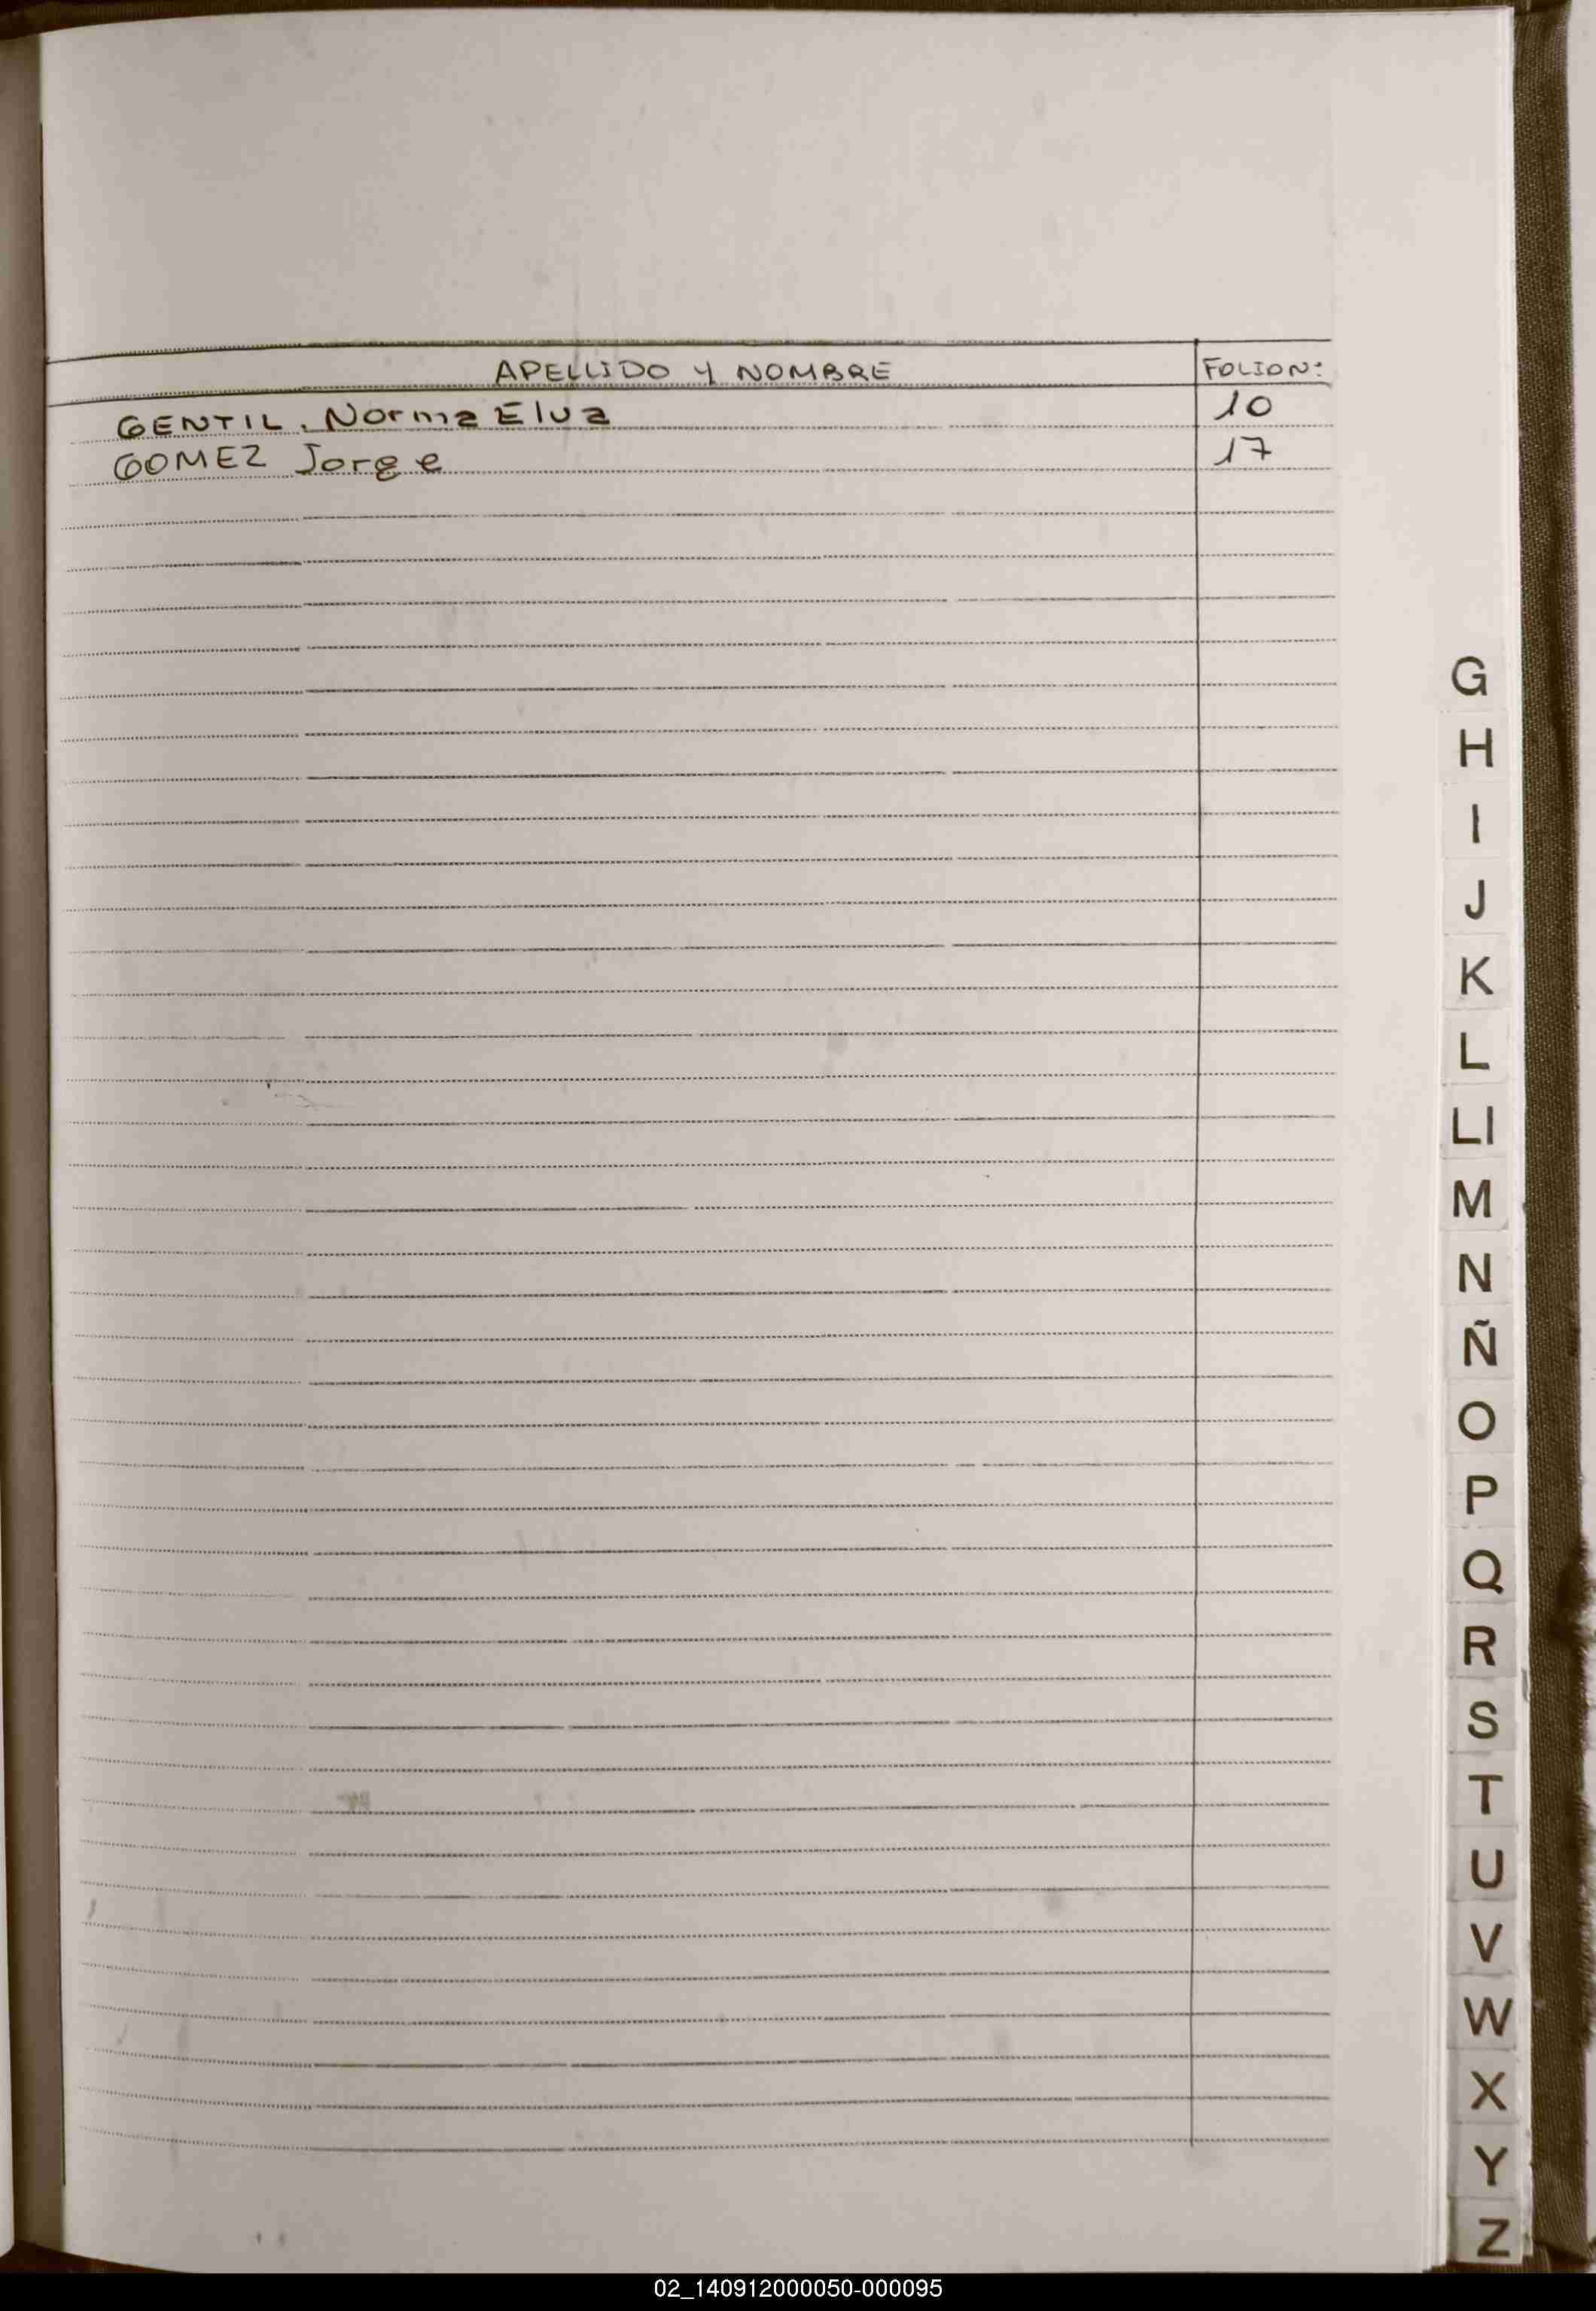 APELLIDO Y NOMBRE FOLION:
GENTIL, Norma Elva 10
GOMEZ Jorge 17
G
H
I
J
K
L
Ll
M
N
Ñ
O
P
Q
R
S
T
U
V
W
X
Y
Z
02_140912000050-000095